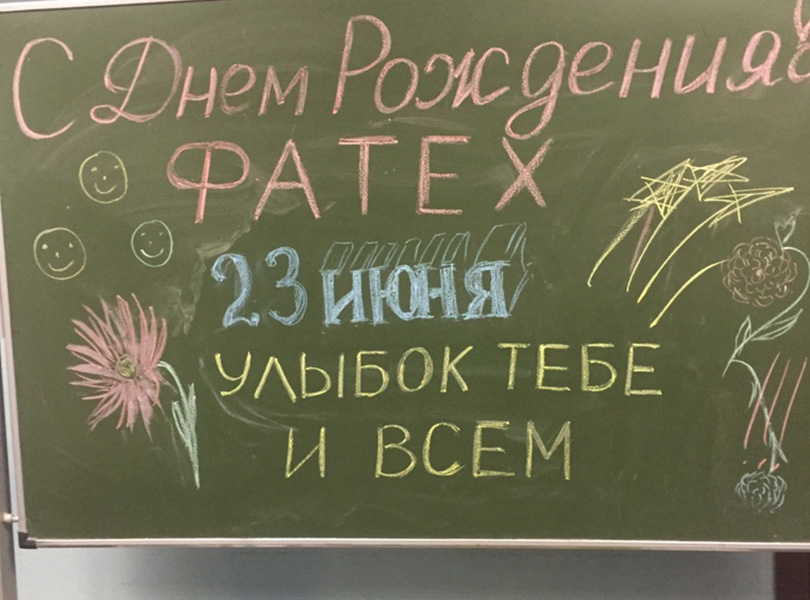 С Днем Рождения!
ФАТЕХ
23 июня
УЛЫБОК ТЕБЕ
И ВСЕМ